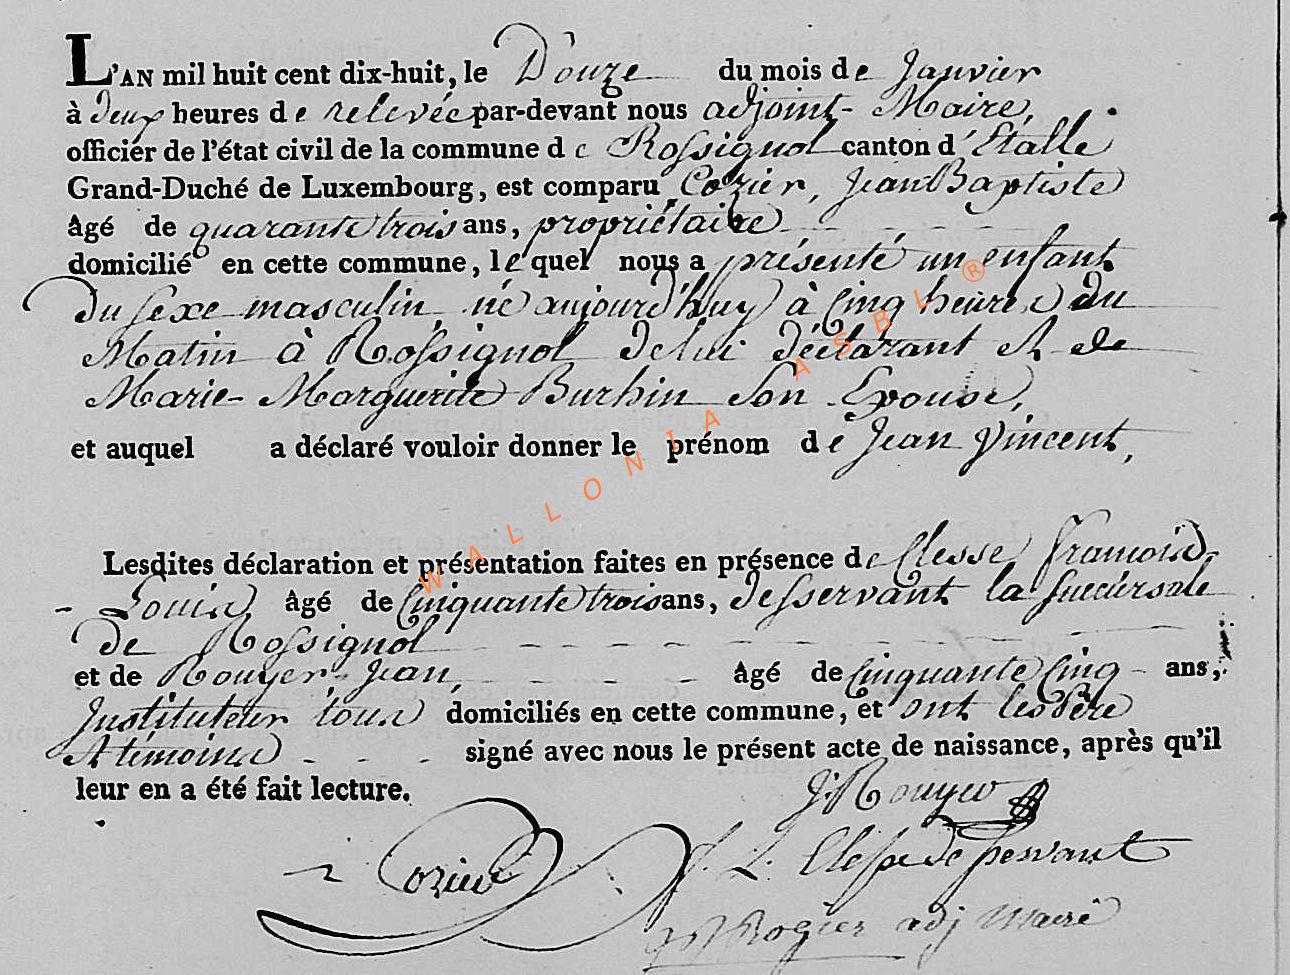 L'AN mil huit cent dix-huit, le Douze du mois de Janvier
à deux heures de relevée par-devant nous adjoint-Maire,
officier de l'état civil de la commune de Rossignol canton d'Etalle
Grand-Duché de Luxembourg, est comparu Cozier, Jean Baptiste
âgé de quarante trois ans, propriétaire
domicilié en cette commune, lequel nous a présenté un enfant
du sexe masculin, né aujourd'huy à Cinq heures du
Matin à Rossignol de lui déclarant et de
Marie-Marguerite Burhin son Epouse,
et auquel a déclaré vouloir donner le prénom de Jean Vincent,
Lesdites déclaration et présentation faites en présence de Clesse François
-Louis âgé de Cinquante trois ans, desservant la succursale
de Rossignol
et de Rouyer Jean, âgé de Cinquante Cinq ans,
Instituteur tous domiciliés en cette commune, et ont les Père
et témoins signé avec nous le présent acte de naissance, après qu'il
leur en a été fait lecture.
J. Rouyer
Cozier
f. L. Clesse desservant
Rogier adj Maire
WALLONIA ASBL ®